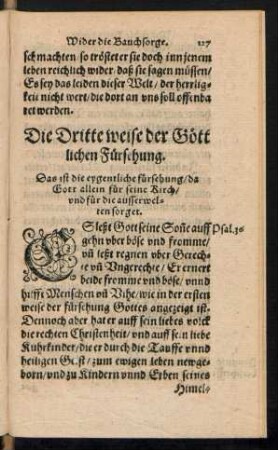 Wider die Bauchsorge. 127
schmachten so tröstet er sie doch inn jenem
leben reichlich wider daß sie sagen müssen/
Es sey das leiden dieser Welt/ der herrlig-
keit nicht wert/ die dort an vns soll offenba
ret werden.
Die Dritte weise der Gött
lichen Fürsehung.
Das ist die eygentliche fürsehung/ da
Gott allein für seine Kirch/
vnd für die ausserwel-
ten sorget.
ES leßt Gott seine Soñe auff Psal. 36
gehn vber böse vnd fromme/
vñ leßt regnen vber Gerech-
te vñ Vngerechte/ Er ernert
beide fromme vnd böse/ vnnd
hilfft Menschen vñ Vihe/ wie in der ersten
weise der fürsehung Gottes angezeigt ist.
Dennoch aber hat er auff sein liebes volck
die rechten Christenheit/ vnd auff sein liebe
Kuhrkinder/ die er durch die Tauffe vnnd
heiligen Geist/ zum ewigen leben newge-
born/ vnd zu Kindern vnnd Erben seines
Himel-